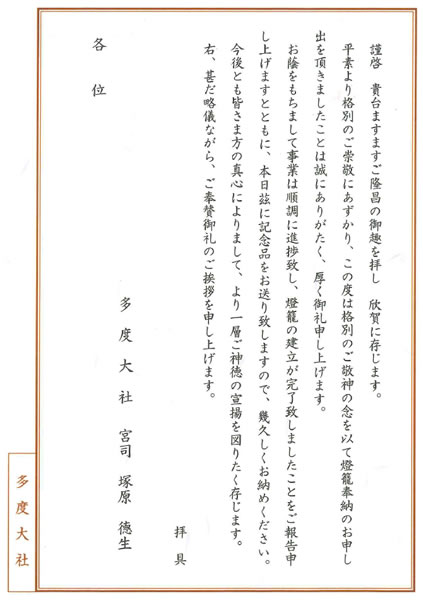 謹啓　貴台ますますご隆昌の御趣を拝し　欣賀に存じます。
平素より格別のご崇敬にあずかり、この度は格別のご敬神の念を以て燈籠奉納のお申し
出を頂きましたことは誠にありがたく、厚く御礼申し上げます。
お蔭をもちまして事業は順調に進捗致し、燈籠の建立が完了致しましたことをご報告申
し上げますとともに、本日茲に記念品をお送り致しますので、幾久しくお納めください。
今後とも皆さま方の真心によりまして、より一層ご神徳の宣揚を図りたく存じます。
右、甚だ略儀ながら、ご奉賛御礼のご挨拶を申し上げます。
拝具
多度大社　宮司　塚原　徳生
各位
多度大社